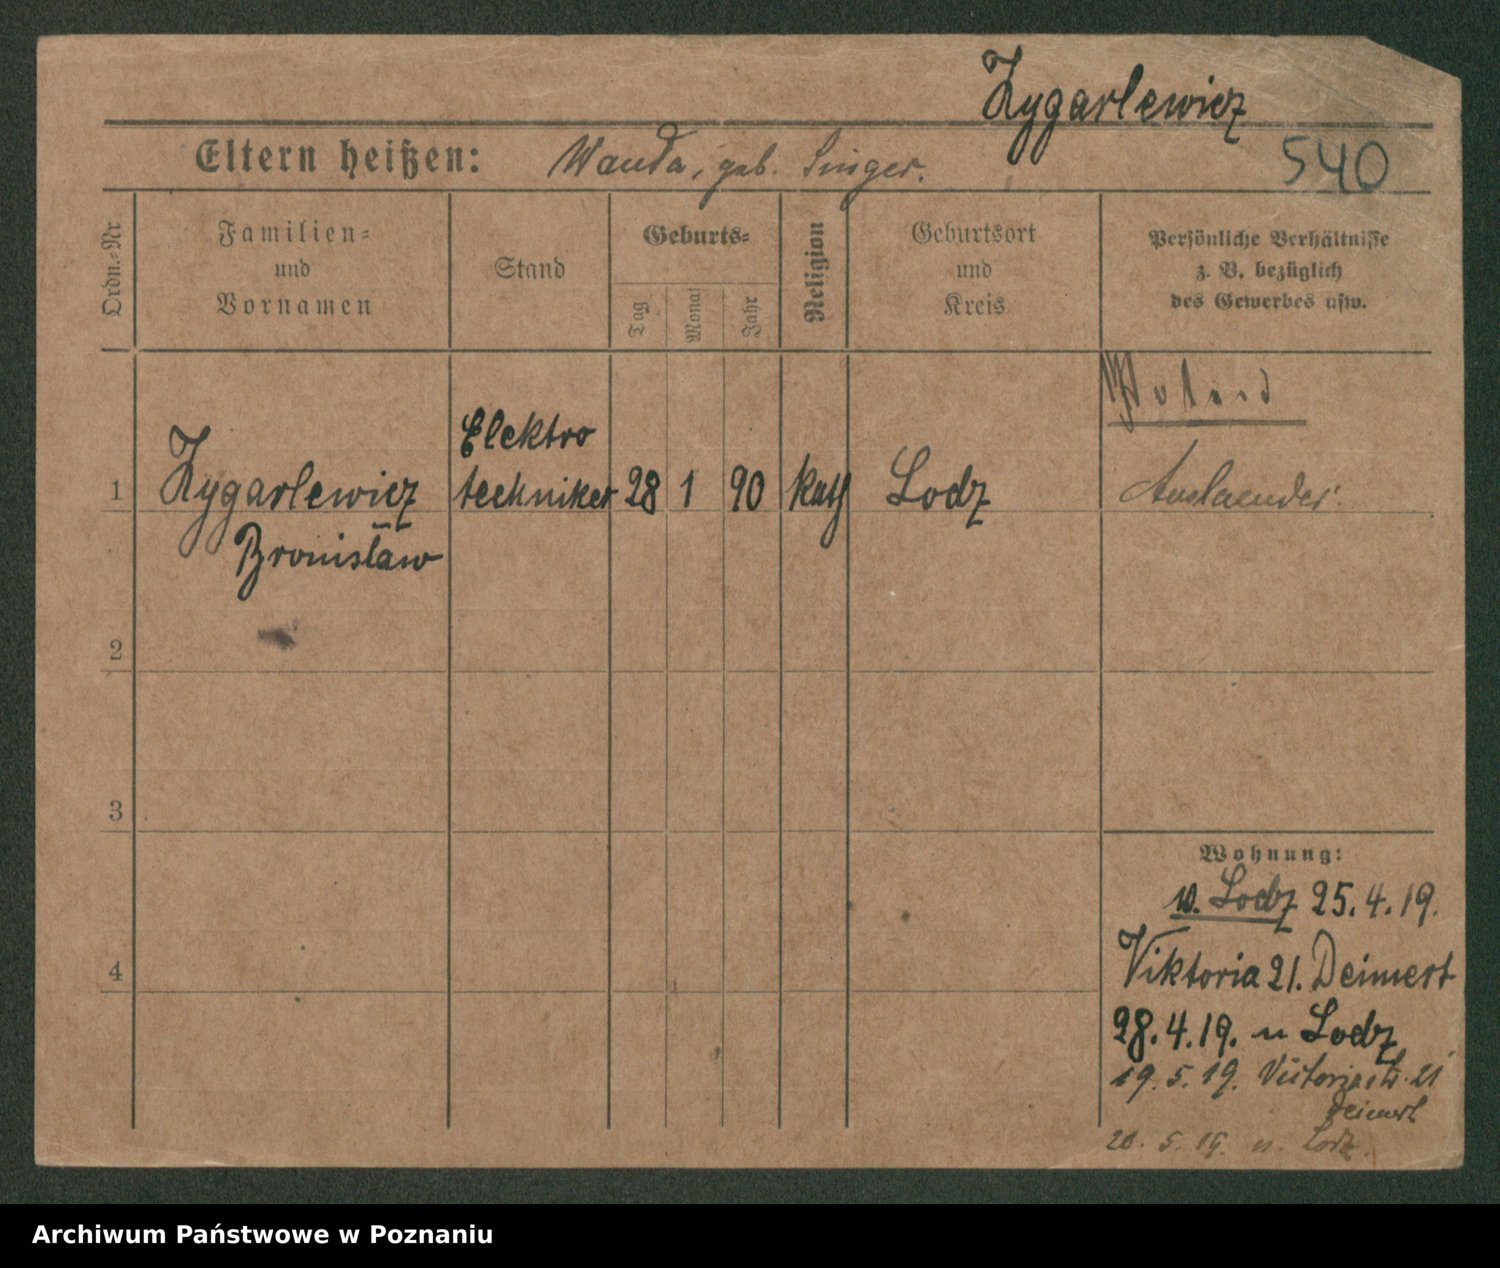 Zygarlewicz
Eltern heißen: Wanda, geb. Singer.
540
Ordn.-Nr
Familien-
und
Vornamen
Stand
Geburts-
Tag
Monat
Jahr
Religion
Geburtsort
und
Kreis
Persönliche Verhältnisse
z. B. bezüglich
des Gewerbes usw.
1
Zygarlewicz
Bronisław
Elektro
techniker
28
1
90
Kath
Lodz
Auslaender
2
3
4
Wohnung:
v. Lodz 25.4.19.
Viktoria 21. Deimert
28.4.19. n Lodz
19.5.19. Victoriastr. 21
Deimert
20.5.19. n. Lodz.
Archiwum Państwowe w Poznaniu